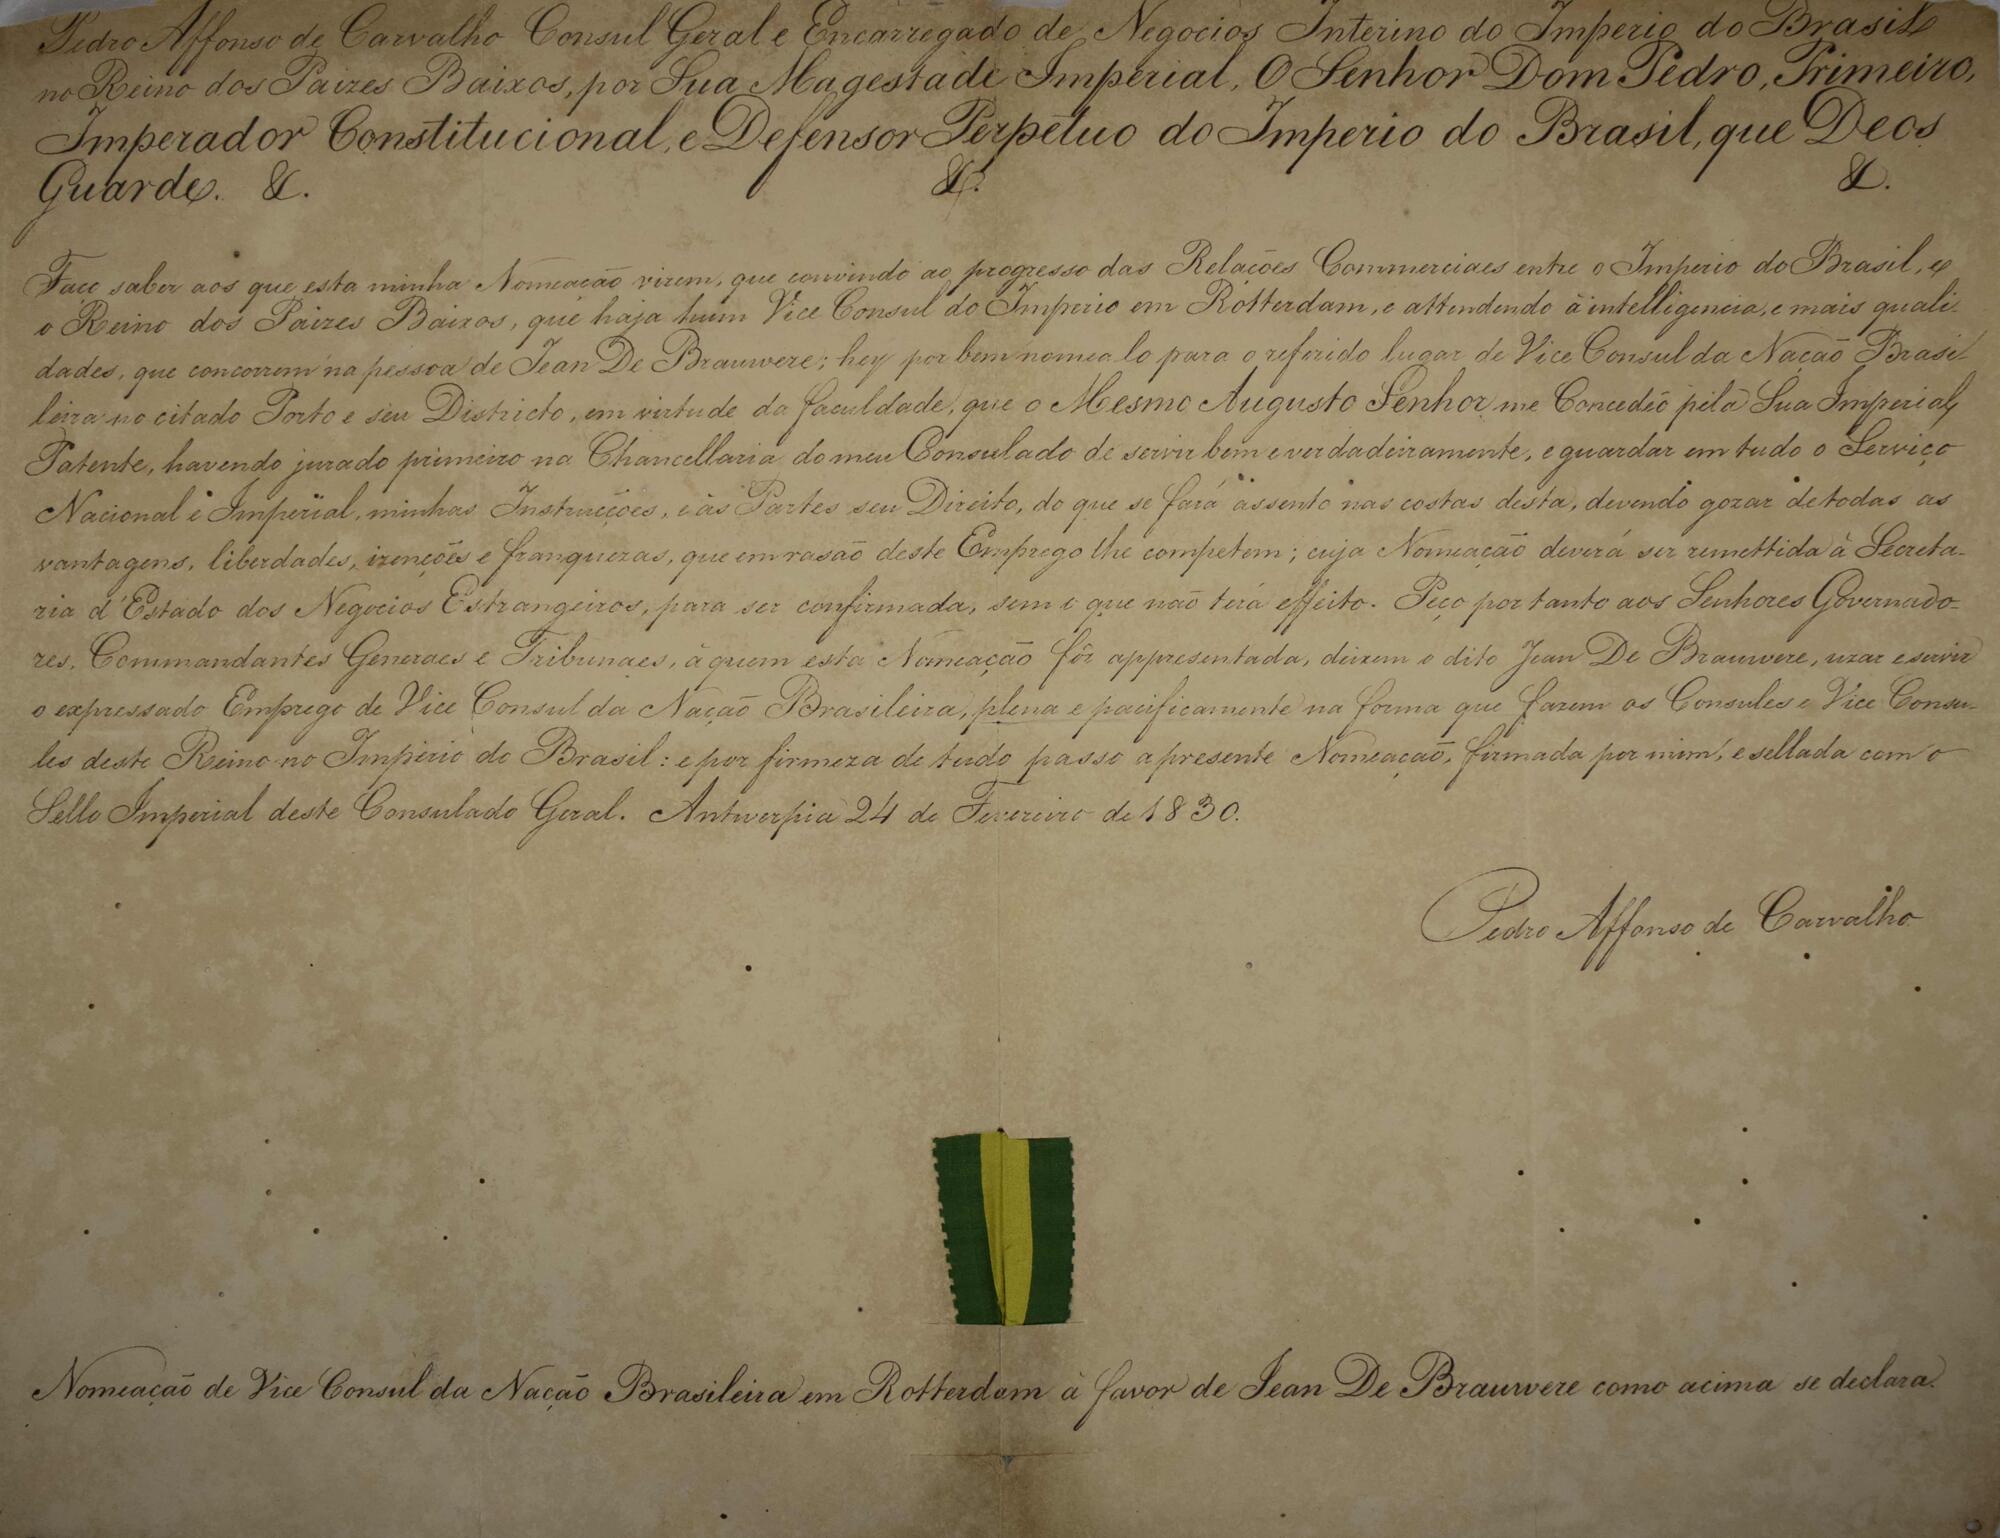 Pedro Affonso de Carvalho Consul Geral e Encarregado de Negocios Interino do Imperio do Brasil
no Reino dos Paizes Baixos, por Sua Magestade Imperial, O Senhor Dom Pedro, Primeiro,
Imperador Constitucional, e Defensor Perpetuo do Imperio do Brasil, que Deos
Guarde. &. &. &.
Faço saber aos que esta minha Nomeação virem, que convindo ao progresso das Relações Commerciaes entre o Imperio do Brasil, e
o Reino dos Paizes Baixos, que haja hum Vice Consul do Imperio em Rotterdam, e attendendo á intelligencia, e mais quali-
dades, que concorrem na pessoa de Jean De Brauwere; hey por bem nomealo para o referido lugar de Vice Consul da Nação Brasi
leira no citado Porto e seu Districto, em virtude da faculdade, que o Mesmo Augusto Senhor me Concedêo pela Sua Imperial
Patente, havendo jurado primeiro na Chancellaria do meu Consulado de servir bem e verdadeiramente, e guardar em tudo o Serviço
Nacional e Imperial, minhas Instrucções, e ás Partes seu Direito, do que se fará assento nas costas desta, devendo gozar de todas as
vantagens, liberdades, izenções e franquezas, que em rasão deste Emprego lhe competem; cuja Nomeação deverá ser remettida à Secreta-
ria d'Estado dos Negocios Estrangeiros, para ser confirmada, sem o que não terá effeito. Peço portanto aos Senhores Governado-
res, Commandantes Generaes e Tribunaes, à quem esta Nomeação fôr appresentada, deixem o dito Jean De Brauwere, uzar e servir
o expressado Emprego de Vice Consul da Nação Brasileira, plena e pacificamente na forma que fazem os Consules e Vice Consu-
les deste Reino no Imperio do Brasil: e por firmeza de tudo passo a presente Nomeação, firmada por mim, e sellada com o
Sello Imperial deste Consulado Geral. Antwerpia 24 de Fevereiro de 1830.
Pedro Affonso de Carvalho
Nomeação de Vice Consul da Nação Brasileira em Rotterdam à favor de Jean De Brauwere como acima se declara.